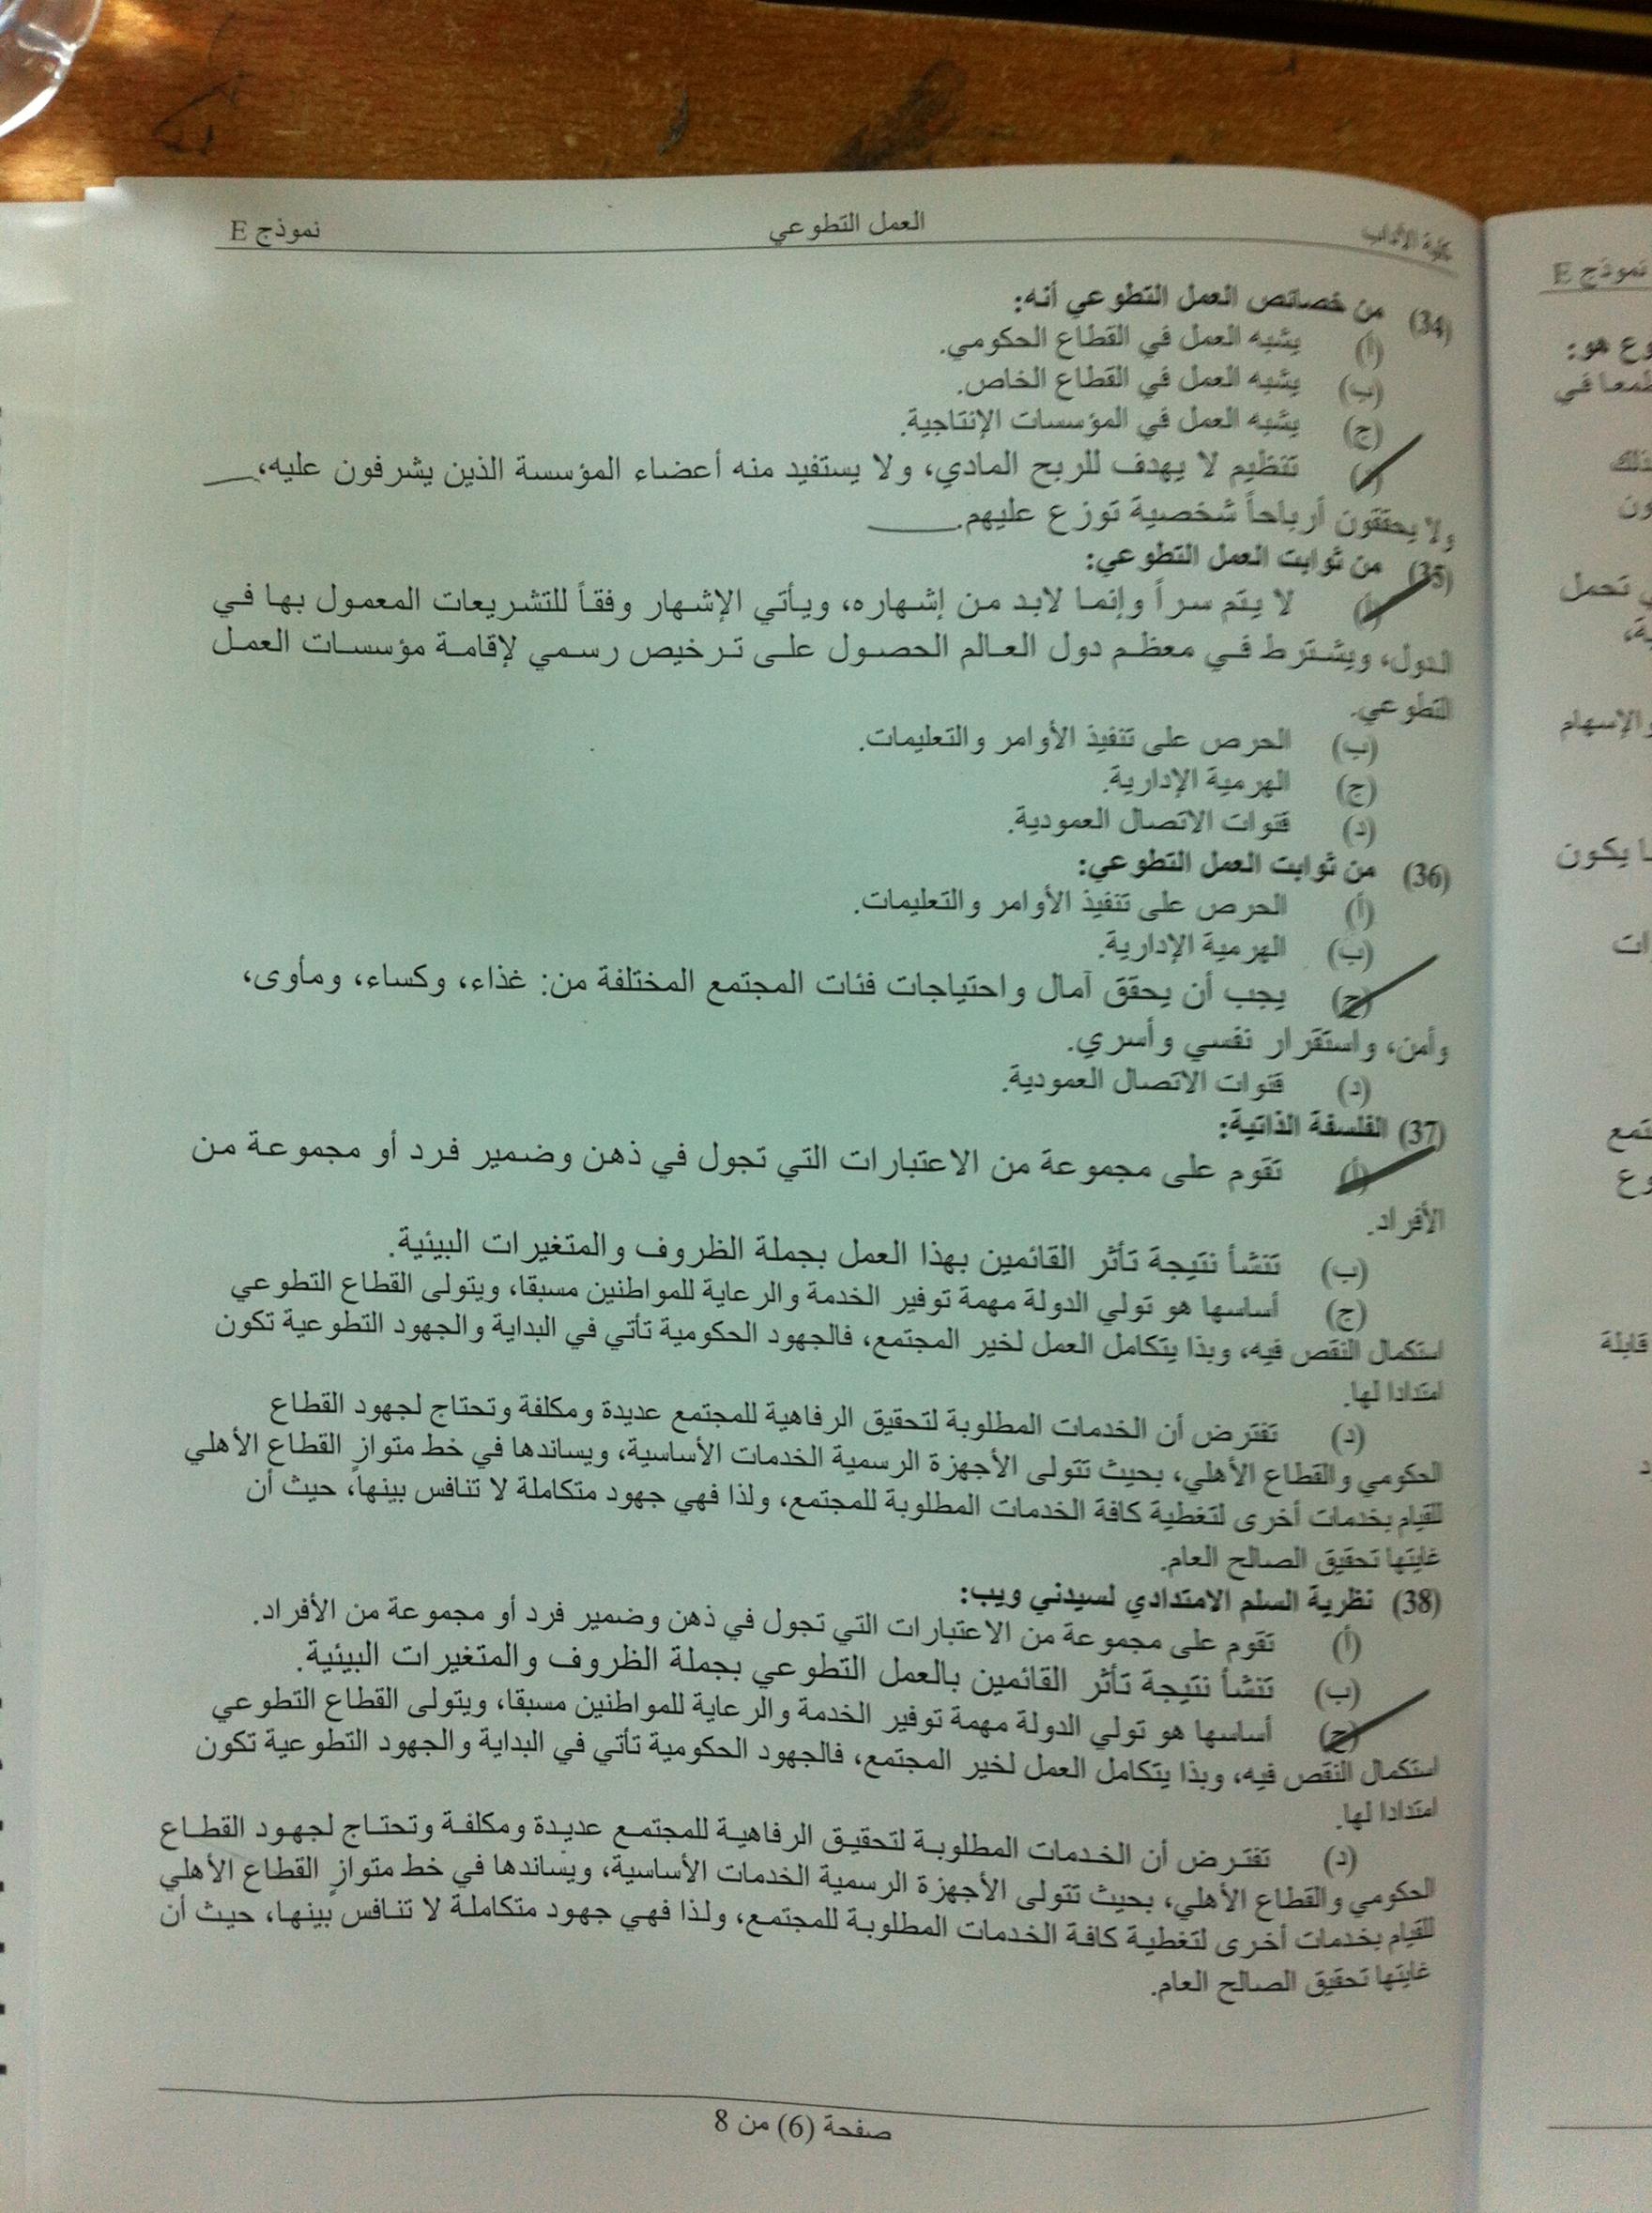 كلية الآداب العمل التطوعي نموذج E
(34) من خصائص العمل التطوعي أنه:
(أ) يشبه العمل في القطاع الحكومي.
(ب) يشبه العمل في القطاع الخاص.
(ج) يشبه العمل في المؤسسات الإنتاجية.
(د) تنظيم لا يهدف للربح المادي، ولا يستفيد منه أعضاء المؤسسة الذين يشرفون عليه،
ولا يحققون أرباحاً شخصية توزع عليهم.
(35) من ثوابت العمل التطوعي:
(أ) لا يتم سراً وإنما لابد من إشهاره، ويأتي الإشهار وفقاً للتشريعات المعمول بها في
الدول، ويشترط في معظم دول العالم الحصول على ترخيص رسمي لإقامة مؤسسات العمل
التطوعي.
(ب) الحرص على تنفيذ الأوامر والتعليمات.
(ج) الهرمية الإدارية.
(د) قنوات الاتصال العمودية.
(36) من ثوابت العمل التطوعي:
(أ) الحرص على تنفيذ الأوامر والتعليمات.
(ب) الهرمية الإدارية.
(ج) يجب أن يحقق آمال واحتياجات فئات المجتمع المختلفة من: غذاء، وكساء، ومأوى،
وأمن، واستقرار نفسي وأسري.
(د) قنوات الاتصال العمودية.
(37) الفلسفة الذاتية:
(أ) تقوم على مجموعة من الاعتبارات التي تجول في ذهن وضمير فرد أو مجموعة من
الأفراد.
(ب) تنشأ نتيجة تأثر القائمين بهذا العمل بجملة الظروف والمتغيرات البيئية.
(ج) أساسها هو تولي الدولة مهمة توفير الخدمة والرعاية للمواطنين مسبقا، ويتولى القطاع التطوعي
استكمال النقص فيه، وبذا يتكامل العمل لخير المجتمع، فالجهود الحكومية تأتي في البداية والجهود التطوعية تكون
امتدادا لها.
(د) تفترض أن الخدمات المطلوبة لتحقيق الرفاهية للمجتمع عديدة ومكلفة وتحتاج لجهود القطاع
الحكومي والقطاع الأهلي، بحيث تتولى الأجهزة الرسمية الخدمات الأساسية، ويساندها في خط متوازٍ القطاع الأهلي
للقيام بخدمات أخرى لتغطية كافة الخدمات المطلوبة للمجتمع، ولذا فهي جهود متكاملة لا تنافس بينها، حيث أن
غايتها تحقيق الصالح العام.
(38) نظرية السلم الامتدادي لسيدني ويب:
(أ) تقوم على مجموعة من الاعتبارات التي تجول في ذهن وضمير فرد أو مجموعة من الأفراد.
(ب) تنشأ نتيجة تأثر القائمين بالعمل التطوعي بجملة الظروف والمتغيرات البيئية.
(ج) أساسها هو تولي الدولة مهمة توفير الخدمة والرعاية للمواطنين مسبقا، ويتولى القطاع التطوعي
استكمال النقص فيه، وبذا يتكامل العمل لخير المجتمع، فالجهود الحكومية تأتي في البداية والجهود التطوعية تكون
امتدادا لها.
(د) تفترض أن الخدمات المطلوبة لتحقيق الرفاهية للمجتمع عديدة ومكلفة وتحتاج لجهود القطاع
الحكومي والقطاع الأهلي، بحيث تتولى الأجهزة الرسمية الخدمات الأساسية، ويساندها في خط متوازٍ القطاع الأهلي
للقيام بخدمات أخرى لتغطية كافة الخدمات المطلوبة للمجتمع، ولذا فهي جهود متكاملة لا تنافس بينها، حيث أن
غايتها تحقيق الصالح العام.
صفحة (6) من 8
نموذج E
هو:
في
تحمل
والإسهام
يكون
قابلة